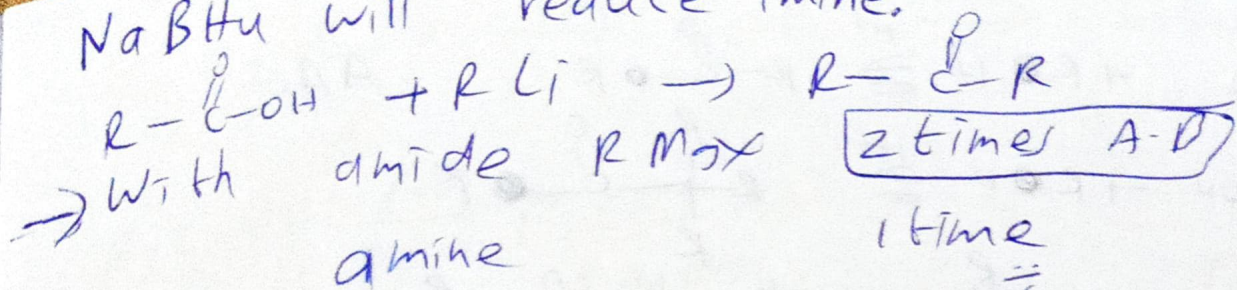 NaBH4 will reduce imine.
R-C-OH + RLi → R-C-R
O O
→ With amide RMgX 2 times A-B
amine 1 time